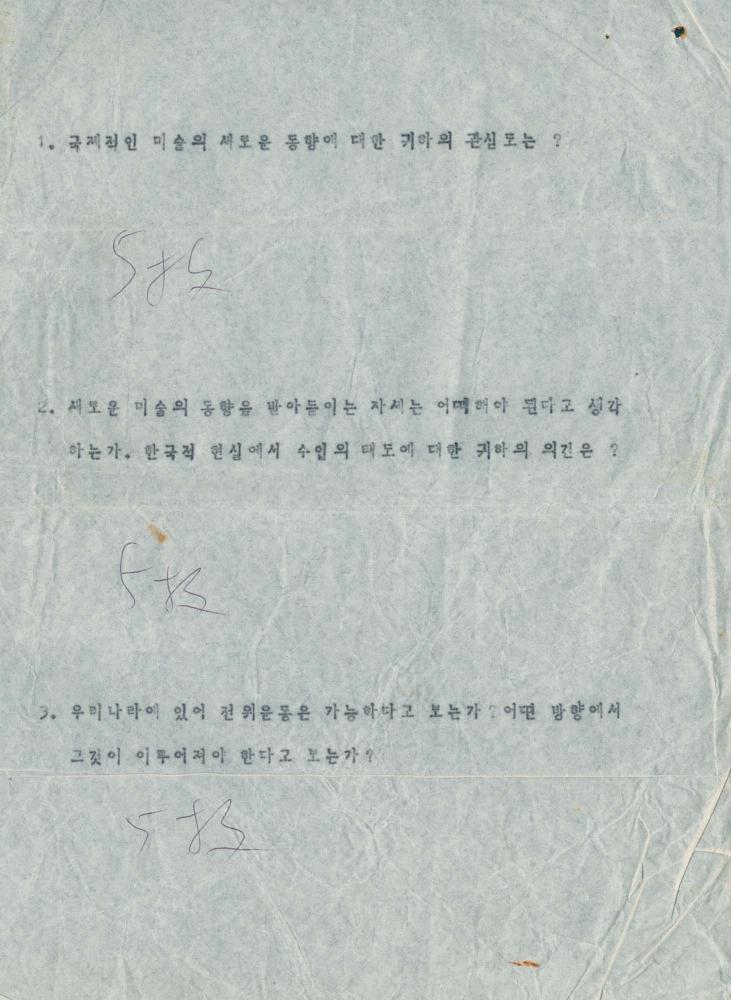 1. 국제적인 미술의 새로운 동향에 대한 귀하의 관심도는 ?
5枚
2. 새로운 미술의 동향을 받아들이는 자세는 어떠해야 된다고 생각
하는가. 한국적 현실에서 수입의 태도에 대한 귀하의 의견은 ?
5枚
3. 우리나라에 있어 전위운동은 가능하다고 보는가? 어떤 방향에서
그것이 이루어져야 한다고 보는가?
5枚